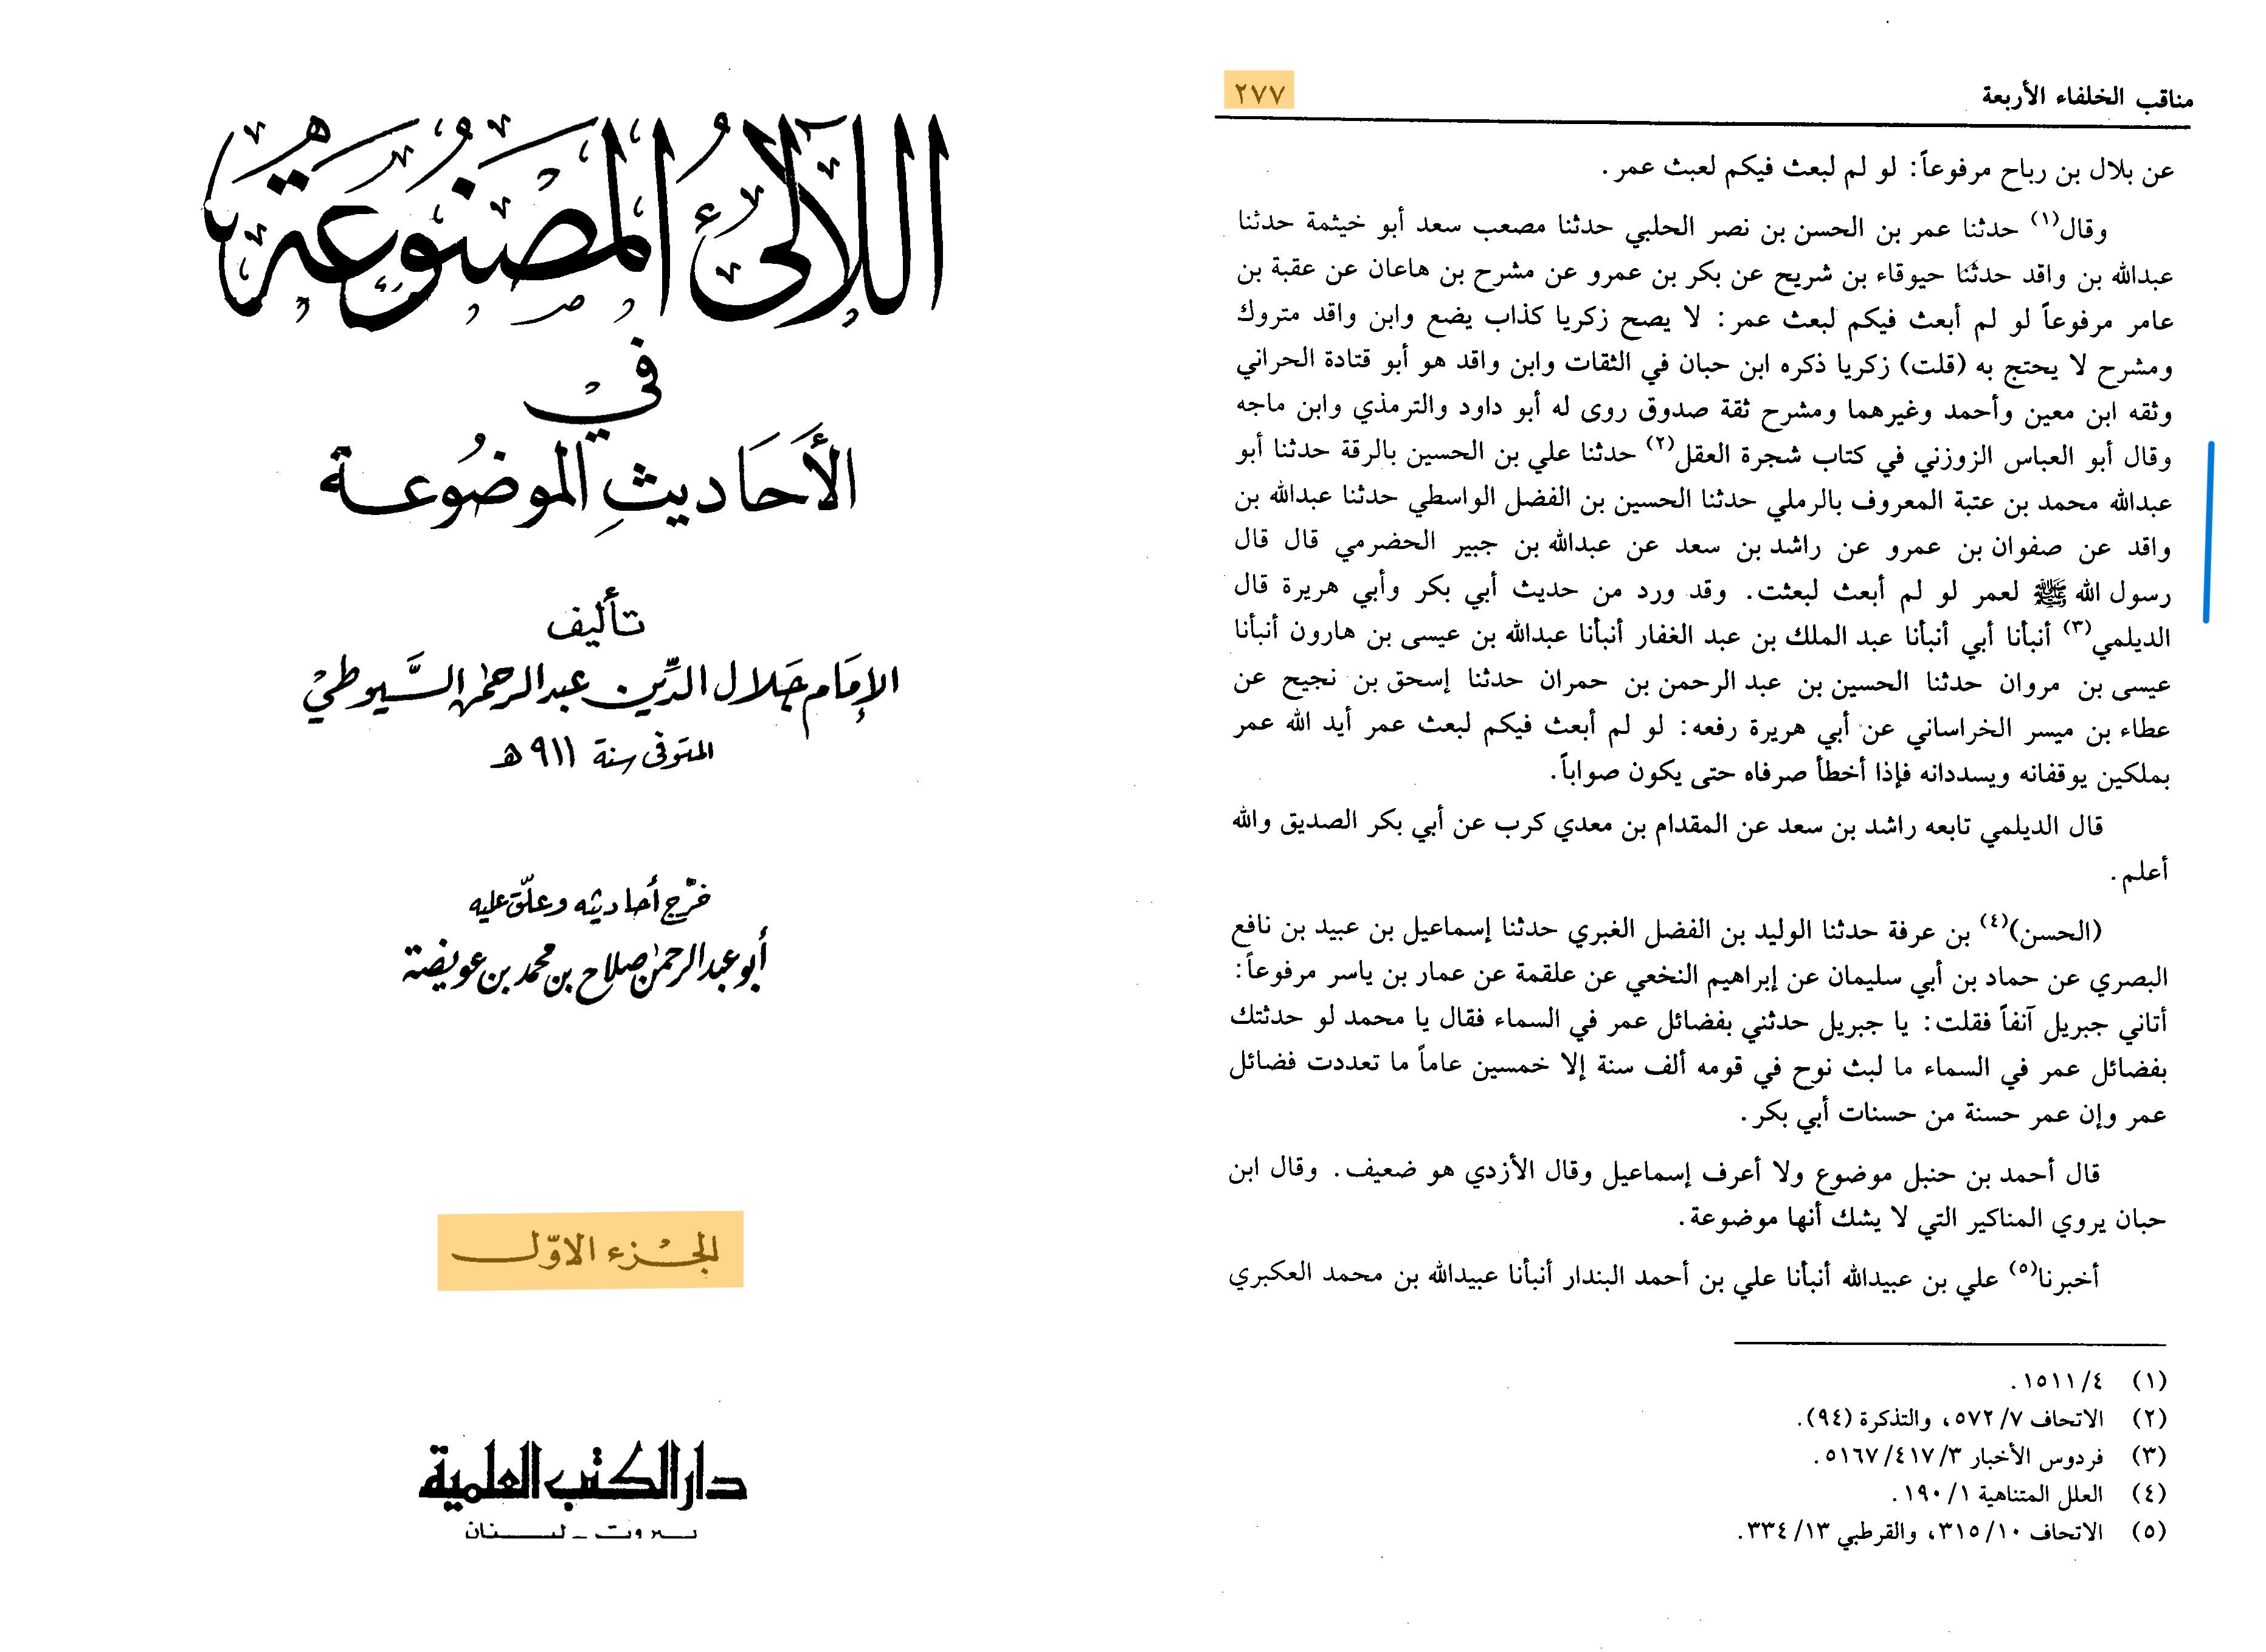 اللآلئ المصنوعة
في
الأحاديث الموضوعة
تأليف
الإمام جلال الدين عبد الرحمن السيوطي
المتوفى سنة ٩١١ هـ
خرّج أحاديثه وعلّق عليه
أبو عبد الرحمن صلاح بن محمد بن عويضة
الجزء الأوّل
دار الكتب العلمية
بيروت - لبنان
مناقب الخلفاء الأربعة ٢٧٧
عن بلال بن رباح مرفوعاً: لو لم لبعث فيكم لعبث عمر.
وقال(١) حدثنا عمر بن الحسن بن نصر الحلبي حدثنا مصعب سعد أبو خيثمة حدثنا
عبدالله بن واقد حدثنا حيوقاء بن شريح عن بكر بن عمرو عن مشرح بن هاعان عن عقبة بن
عامر مرفوعاً لو لم أبعث فيكم لبعث عمر: لا يصح زكريا كذاب يضع وابن واقد متروك
ومشرح لا يحتج به (قلت) زكريا ذكره ابن حبان في الثقات وابن واقد هو أبو قتادة الحراني
وثقه ابن معين وأحمد وغيرهما ومشرح ثقة صدوق روى له أبو داود والترمذي وابن ماجه
وقال أبو العباس الزوزني في كتاب شجرة العقل(٢) حدثنا علي بن الحسين بالرقة حدثنا أبو
عبدالله محمد بن عتبة المعروف بالرملي حدثنا الحسين بن الفضل الواسطي حدثنا عبدالله بن
واقد عن صفوان بن عمرو عن راشد بن سعد عن عبدالله بن جبير الحضرمي قال قال
رسول الله ﷺ لعمر لو لم أبعث لبعثت. وقد ورد من حديث أبي بكر وأبي هريرة قال
الديلمي(٣) أنبأنا أبي أنبأنا عبد الملك بن عبد الغفار أنبأنا عبدالله بن عيسى بن هارون أنبأنا
عيسى بن مروان حدثنا الحسين بن عبد الرحمن بن حمران حدثنا إسحق بن نجيح عن
عطاء بن ميسر الخراساني عن أبي هريرة رفعه: لو لم أبعث فيكم لبعث عمر أيد الله عمر
بملكين يوقفانه ويسددانه فإذا أخطأ صرفاه حتى يكون صواباً.
قال الديلمي تابعه راشد بن سعد عن المقدام بن معدي كرب عن أبي بكر الصديق والله
أعلم.
(الحسن)(٤) بن عرفة حدثنا الوليد بن الفضل الغبري حدثنا إسماعيل بن عبيد بن نافع
البصري عن حماد بن أبي سليمان عن إبراهيم النخعي عن علقمة عن عمار بن ياسر مرفوعاً:
أتاني جبريل آنفاً فقلت: يا جبريل حدثني بفضائل عمر في السماء فقال يا محمد لو حدثتك
بفضائل عمر في السماء ما لبث نوح في قومه ألف سنة إلا خمسين عاماً ما تعددت فضائل
عمر وإن عمر حسنة من حسنات أبي بكر.
قال أحمد بن حنبل موضوع ولا أعرف إسماعيل وقال الأزدي هو ضعيف. وقال ابن
حبان يروي المناكير التي لا يشك أنها موضوعة.
أخبرنا(٥) علي بن عبيدالله أنبأنا علي بن أحمد البندار أنبأنا عبيدالله بن محمد العكبري
(١) ٤/١٥١١.
(٢) الاتحاف ٧/٥٧٢، والتذكرة (٩٤).
(٣) فردوس الأخبار ٣/٤١٧/٥١٦٧.
(٤) العلل المتناهية ١/١٩٠.
(٥) الاتحاف ١٠/٣١٥، والقرطبي ١٣/٣٣٤.